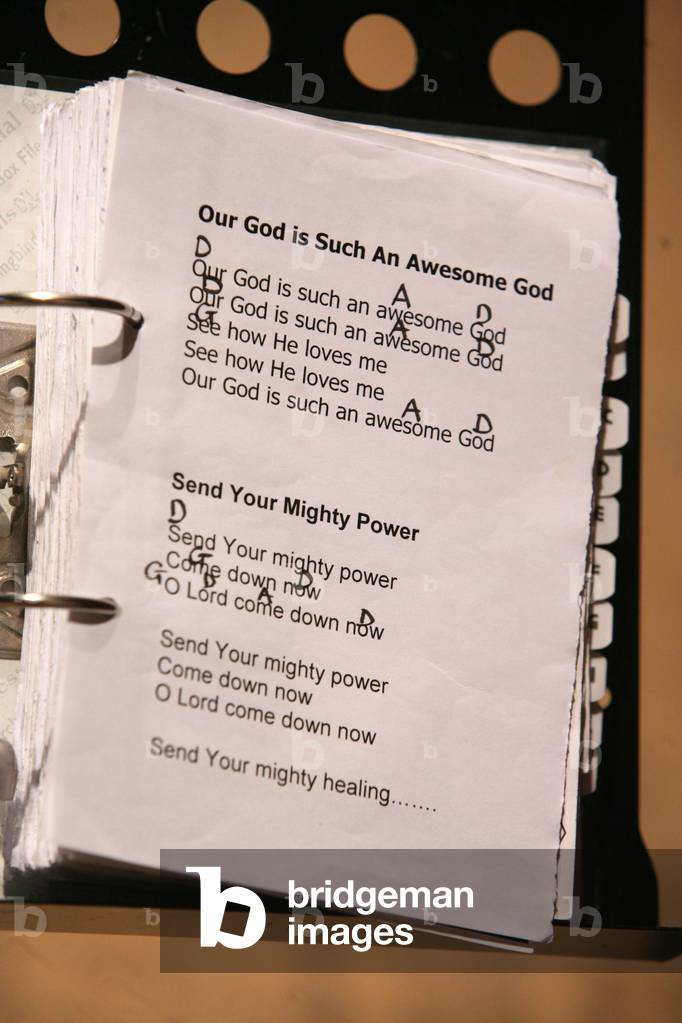 Our God is Such An Awesome God
D
Our God is such an awesome God
D A D
Our God is such an awesome God
G A D
See how He loves me
See how He loves me
A D
Our God is such an awesome God
Send Your Mighty Power
D
Send Your mighty power
G
Come down now
G D A D
O Lord come down now
D
Send Your mighty power
Come down now
O Lord come down now
Send Your mighty healing.......
b bridgeman
images